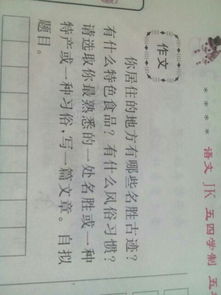 作文
你居住的地方有哪些名胜古迹？
有什么特色食品？有什么风俗习惯？
请选取你最熟悉的一处名胜或一种
特产或一种习俗，写一篇文章。自拟
题目。
语文 JK 五四学制 五